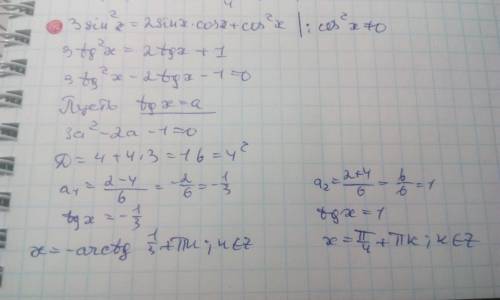 3sin²x = 2sinx·cosx + cos²x |: cos²x ≠ 0
3tg²x = 2tgx + 1
3tg²x - 2tgx - 1 = 0
Пусть tgx = a
3a² - 2a - 1 = 0
D = 4 + 4·3 = 16 = 4²
a₁ = (2-4)/6 = -2/6 = -1/3
tgx = -1/3
x = -arctg 1/3 + πk; k∈Z
a₂ = (2+4)/6 = 6/6 = 1
tgx = 1
x = π/4 + πk; k∈Z